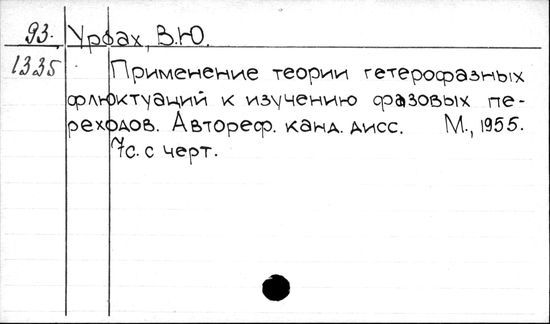 93. Урбах, В.Ю.
1335 Применение теории гетерофазных
флюктуаций к изучению фазовых пе-
реходов. Автореф. канд. дисс. М., 1955.
7с. с черт.